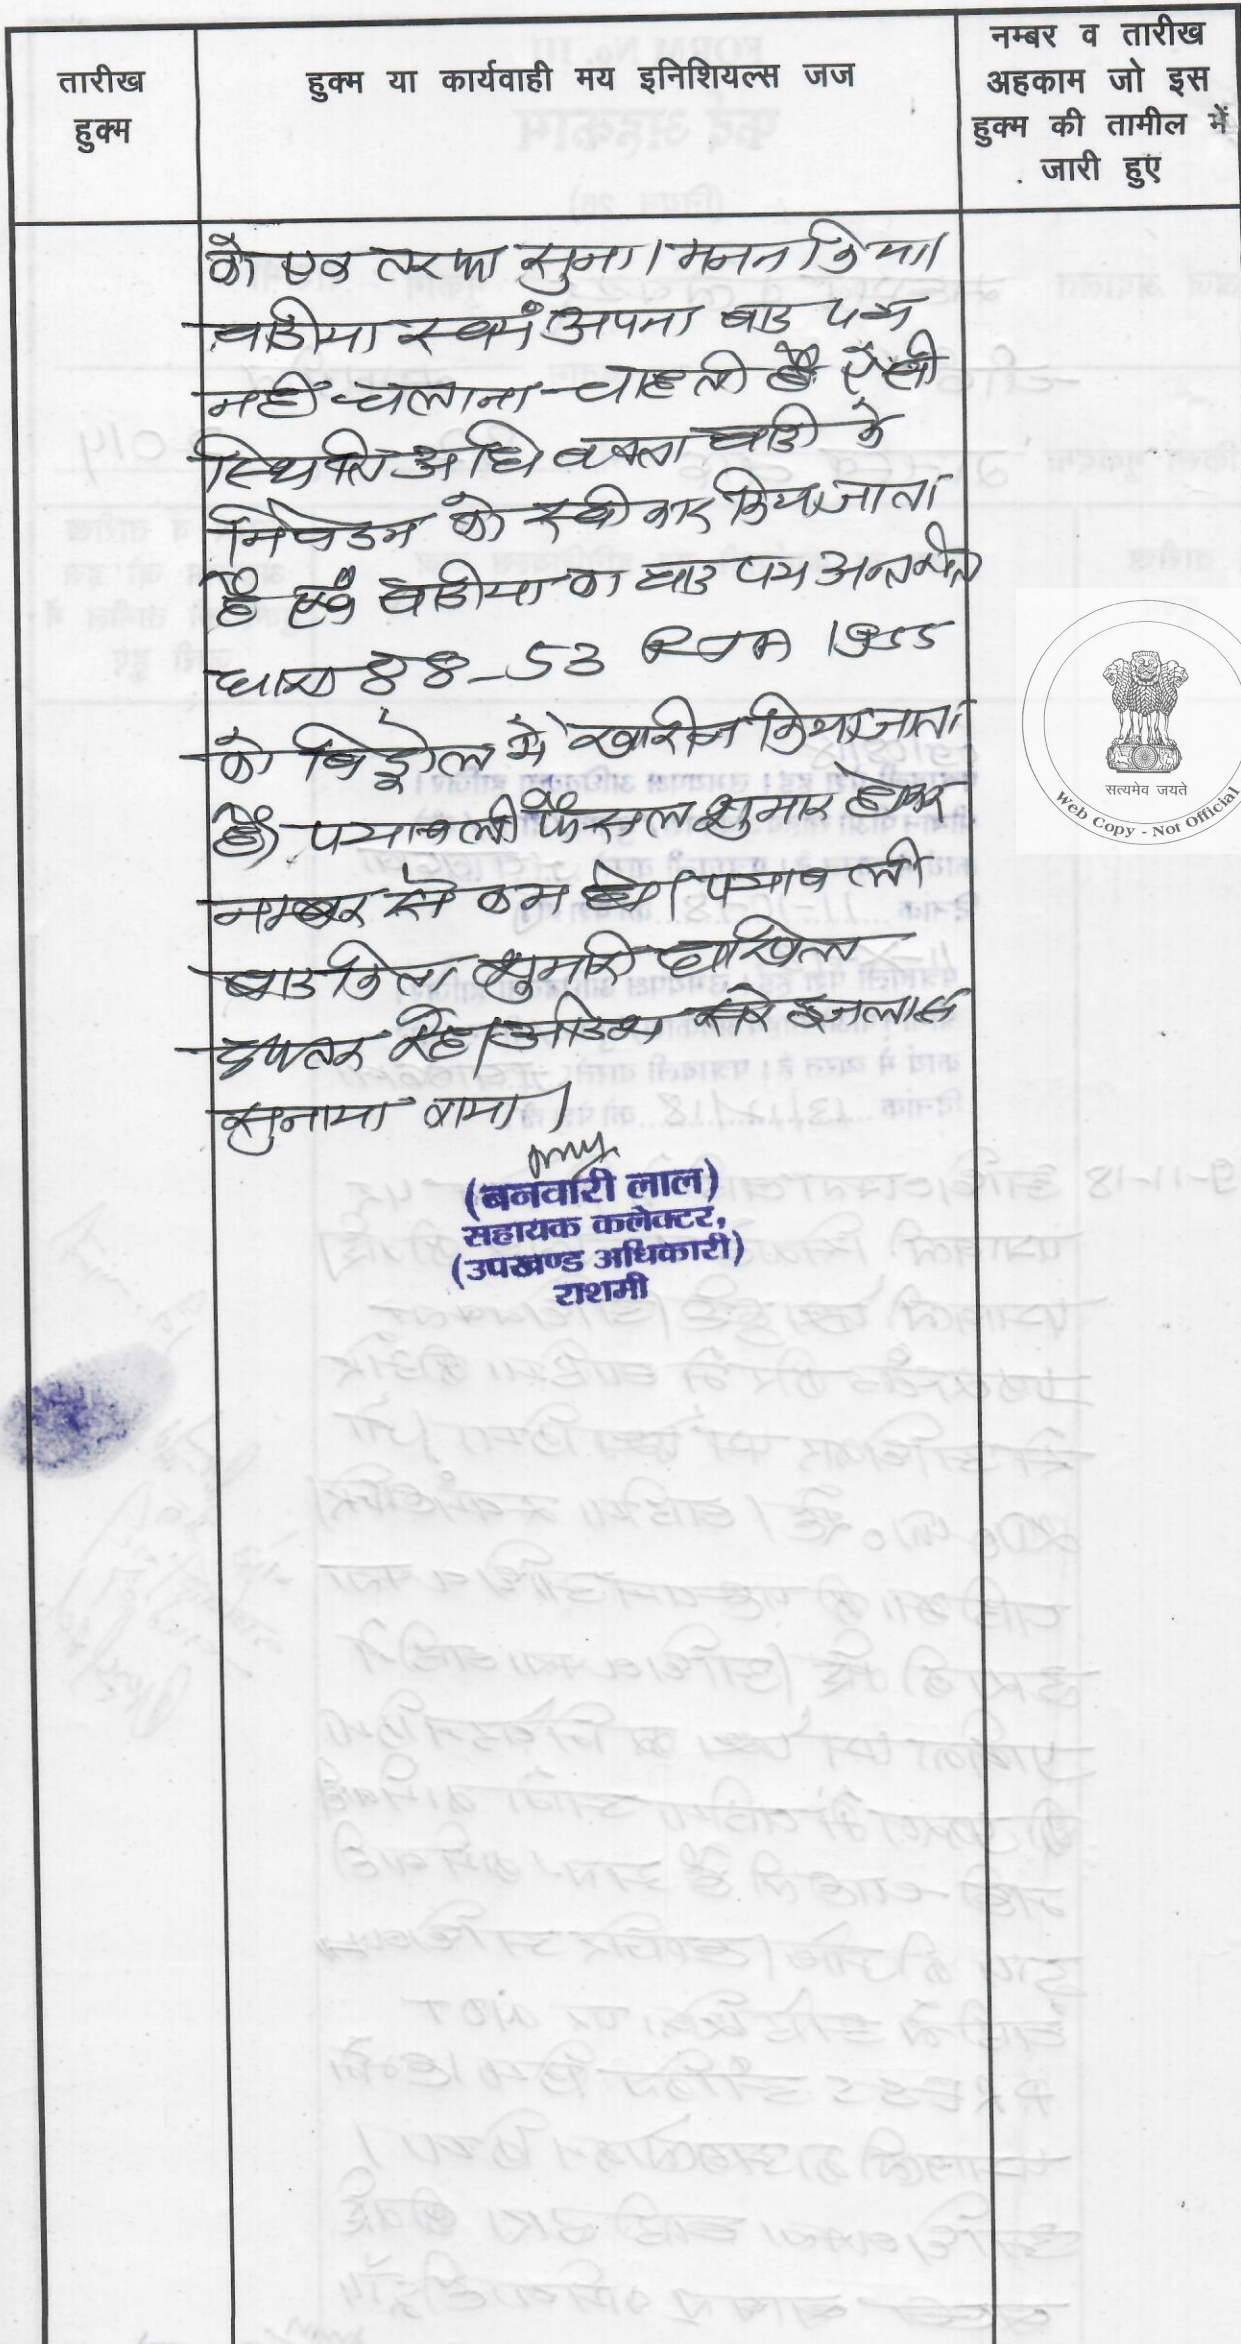 तारीख
हुक्म
हुक्म या कार्यवाही मय इनिशियल्स जज
नम्बर व तारीख
अहकाम जो इस
हुक्म की तामील में
जारी हुए
को एक तरफा सुना। मनन किया।
वादीया स्वयं अपना वाद पत्र
नहीं चलाना चाहती है ऐसी
स्थिति अधिवक्ता वादी के
निवेदन को स्वीकार किया जाता
है एवं वादीया का वाद पत्र अन्तर्गत
धारा 88-53 RTA 1955
को विड्रोल में खारीज किया जाता
है। पत्रावली फैसल शुमार होकर
नम्बर से कम हो। पत्रावली
बाद शुमार दाखिल
दफ्तर रहे। आदेश सरे इजलास
सुनाया गया।
(बनवारी लाल)
सहायक कलेक्टर,
(उपखण्ड अधिकारी)
राशमी
सत्यमेव जयते
Web Copy - Not Official